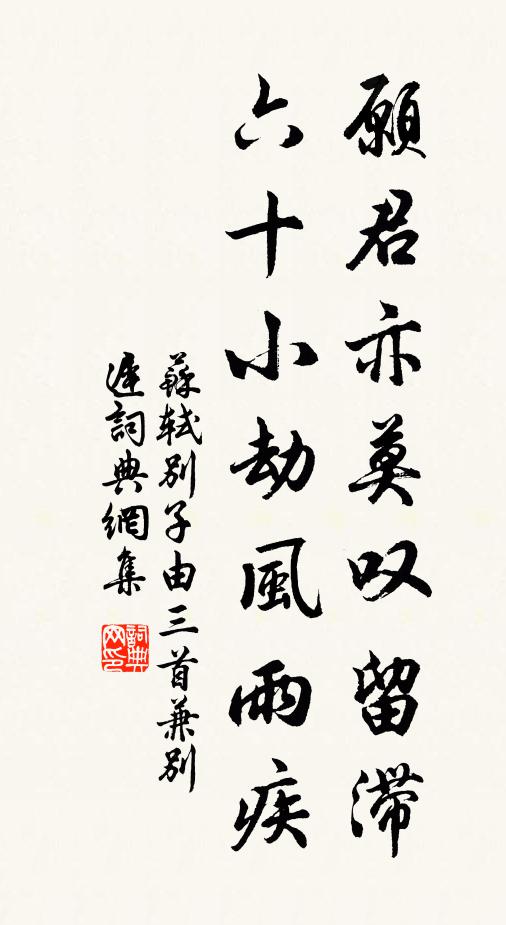 願君亦莫叹留滯
六十小劫風雨疾
蘇軾別子由三首兼別
遲詞典網集
詞典
网印